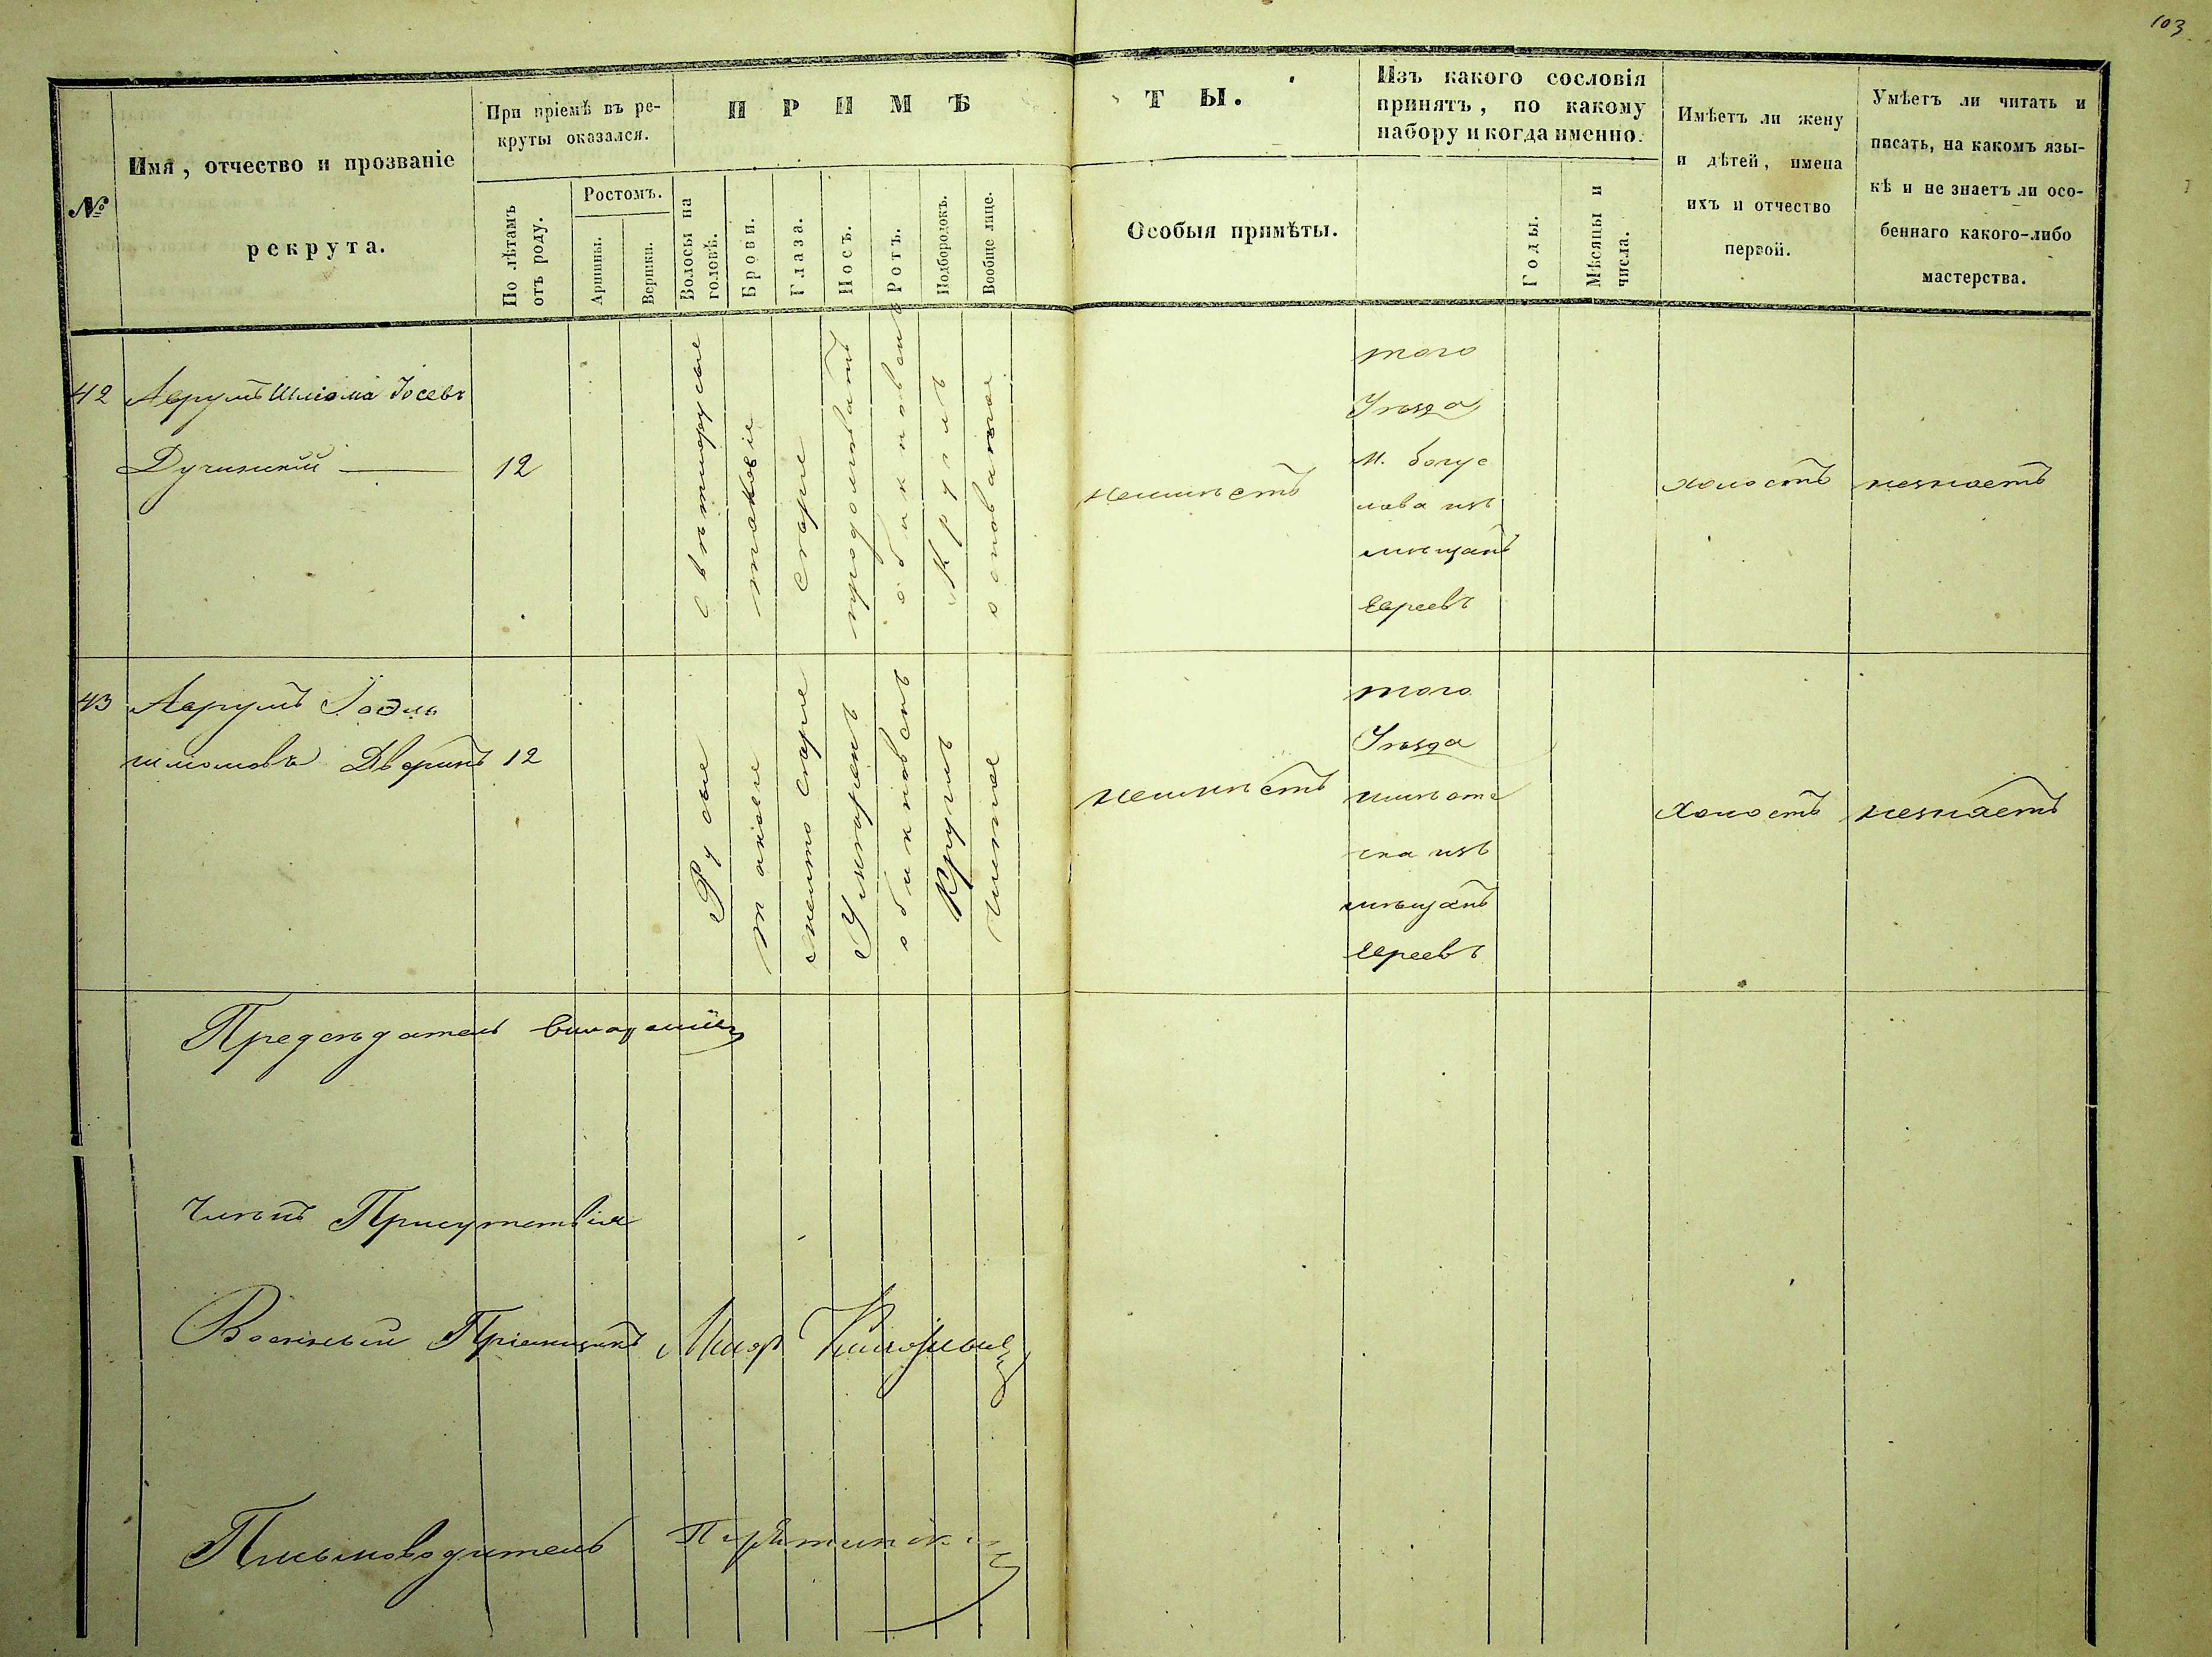 103
№
Имя, отчество и прозваніе
рекрута.
При пріемѣ въ ре-
круты оказался.
По лѣтамъ
отъ роду.
Ростомъ.
Аршины.
Вершки.
ПРИМѢ
ТЫ.
Волосы на
головѣ.
Брови.
Глаза.
Носъ.
Ротъ.
Подбородокъ.
Вообще лице.
Особыя примѣты.
Изъ какого сословія
принятъ, по какому
набору и когда именно.
Годы.
Мѣсяцы и
числа.
Имѣетъ ли жену
и дѣтей, имена
ихъ и отчество
первой.
Умѣетъ ли читать и
писать, на какомъ язы-
кѣ и не знаетъ ли осо-
беннаго какого-либо
мастерства.
42
Аврумъ Шлiома Іосевъ
Дучинскій
12
свѣтлорусые
таковіе
сѣрые
продолговатъ
обыкновенъ
Круглъ
неимѣетъ
того
Уѣзда
м. богус
лава изъ
мѣщанъ
евреевъ
холостъ
незнаетъ
43
Аврумъ
шлiомовъ Дворинъ
12
Русые
таковіе
желто сѣрые
Умѣренъ
обыкновенъ
Круглъ
чистое
неимѣетъ
того
Уѣзда
изъ
мѣщанъ
евреевъ
Холостъ
незнаетъ
Предсѣдатель
Членъ Присутствія
Военный Пріемщикъ
Письмоводитель